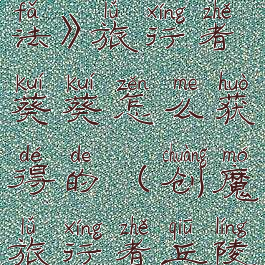 fǎ lǚ xíng zhě
法》旅行者
kuí kuí zěn me huo
葵葵怎么获
dé de chuàng mó
得的(创魔
lǚ xíng zhě qiū líng
旅行者丘陵